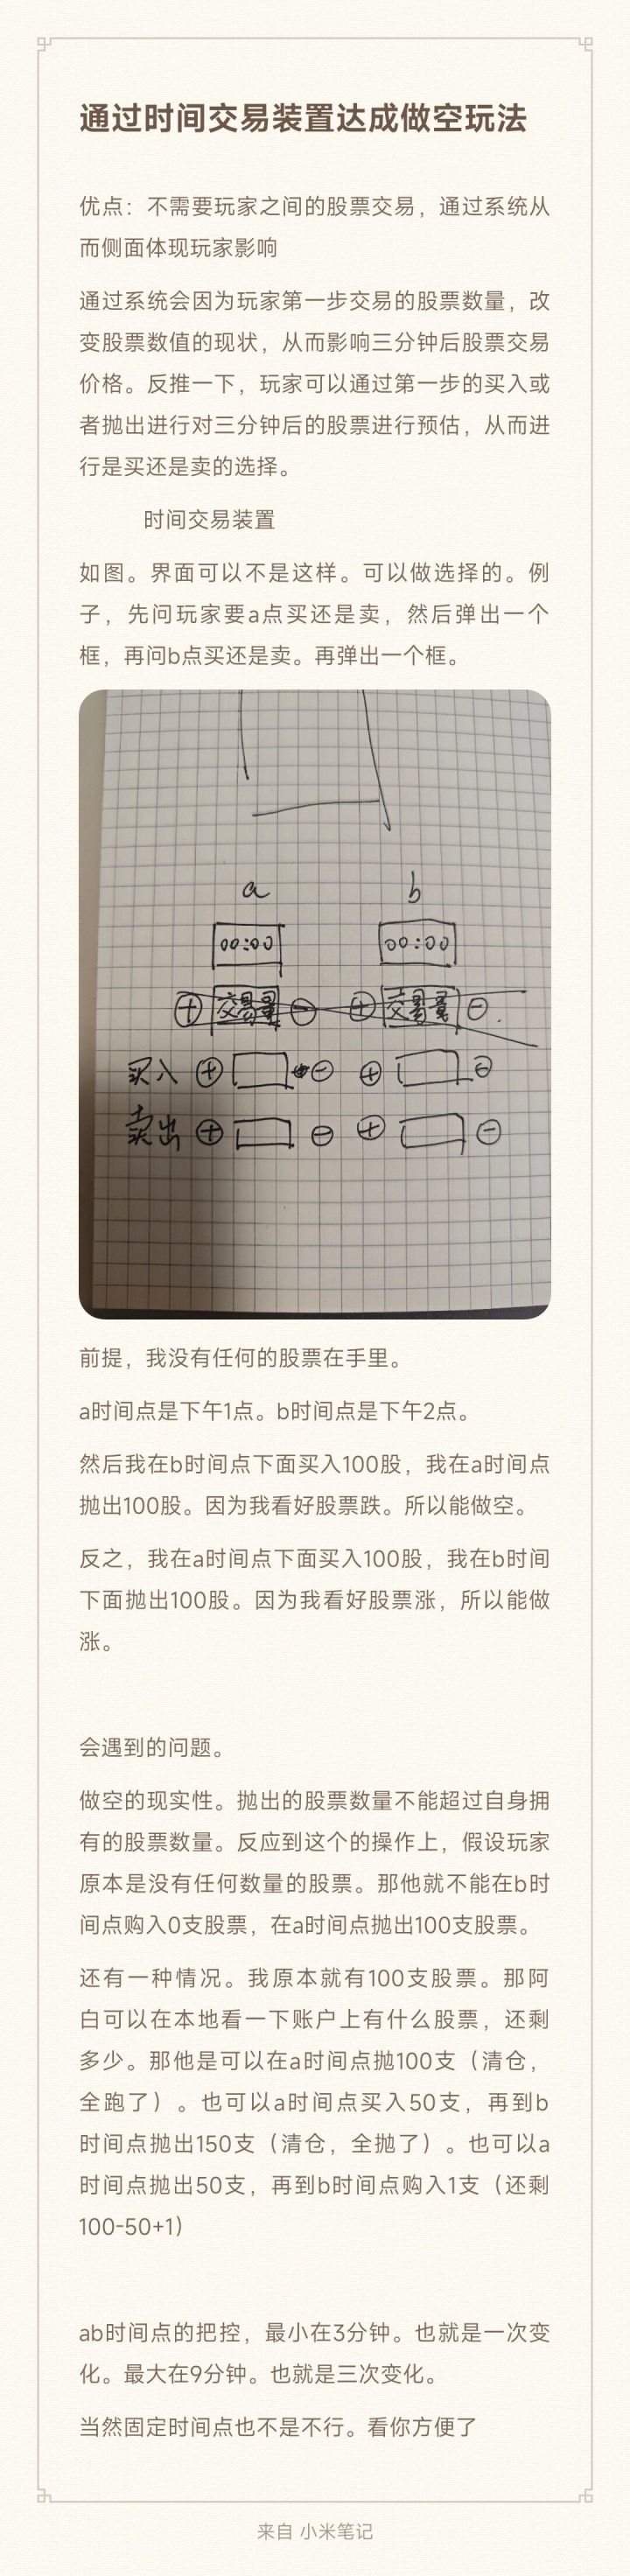 通过时间交易装置达成做空玩法
优点：不需要玩家之间的股票交易，通过系统从
而侧面体现玩家影响
通过系统会因为玩家第一步交易的股票数量，改
变股票数值的现状，从而影响三分钟后股票交易
价格。反推一下，玩家可以通过第一步的买入或
者抛出进行对三分钟后的股票进行预估，从而进
行是买还是卖的选择。
时间交易装置
如图。界面可以不是这样。可以做选择的。例
子，先问玩家要a点买还是卖，然后弹出一个
框，再问b点买还是卖。再弹出一个框。
a b
00:00 00:00
+ 交易量 - + 交易量 -
买入 + - + -
卖出 + - + -
前提，我没有任何的股票在手里。
a时间点是下午1点。b时间点是下午2点。
然后我在b时间点下面买入100股，我在a时间点
抛出100股。因为我看好股票跌。所以能做空。
反之，我在a时间点下面买入100股，我在b时间
下面抛出100股。因为我看好股票涨，所以能做
涨。
会遇到的问题。
做空的现实性。抛出的股票数量不能超过自身拥
有的股票数量。反应到这个的操作上，假设玩家
原本是没有任何数量的股票。那他就不能在b时
间点购入0支股票，在a时间点抛出100支股票。
还有一种情况。我原本就有100支股票。那阿
白可以在本地看一下账户上有什么股票，还剩
多少。那他是可以在a时间点抛100支（清仓，
全跑了）。也可以a时间点买入50支，再到b
时间点抛出150支（清仓，全抛了）。也可以a
时间点抛出50支，再到b时间点购入1支（还剩
100-50+1）
ab时间点的把控，最小在3分钟。也就是一次变
化。最大在9分钟。也就是三次变化。
当然固定时间点也不是不行。看你方便了
来自 小米笔记